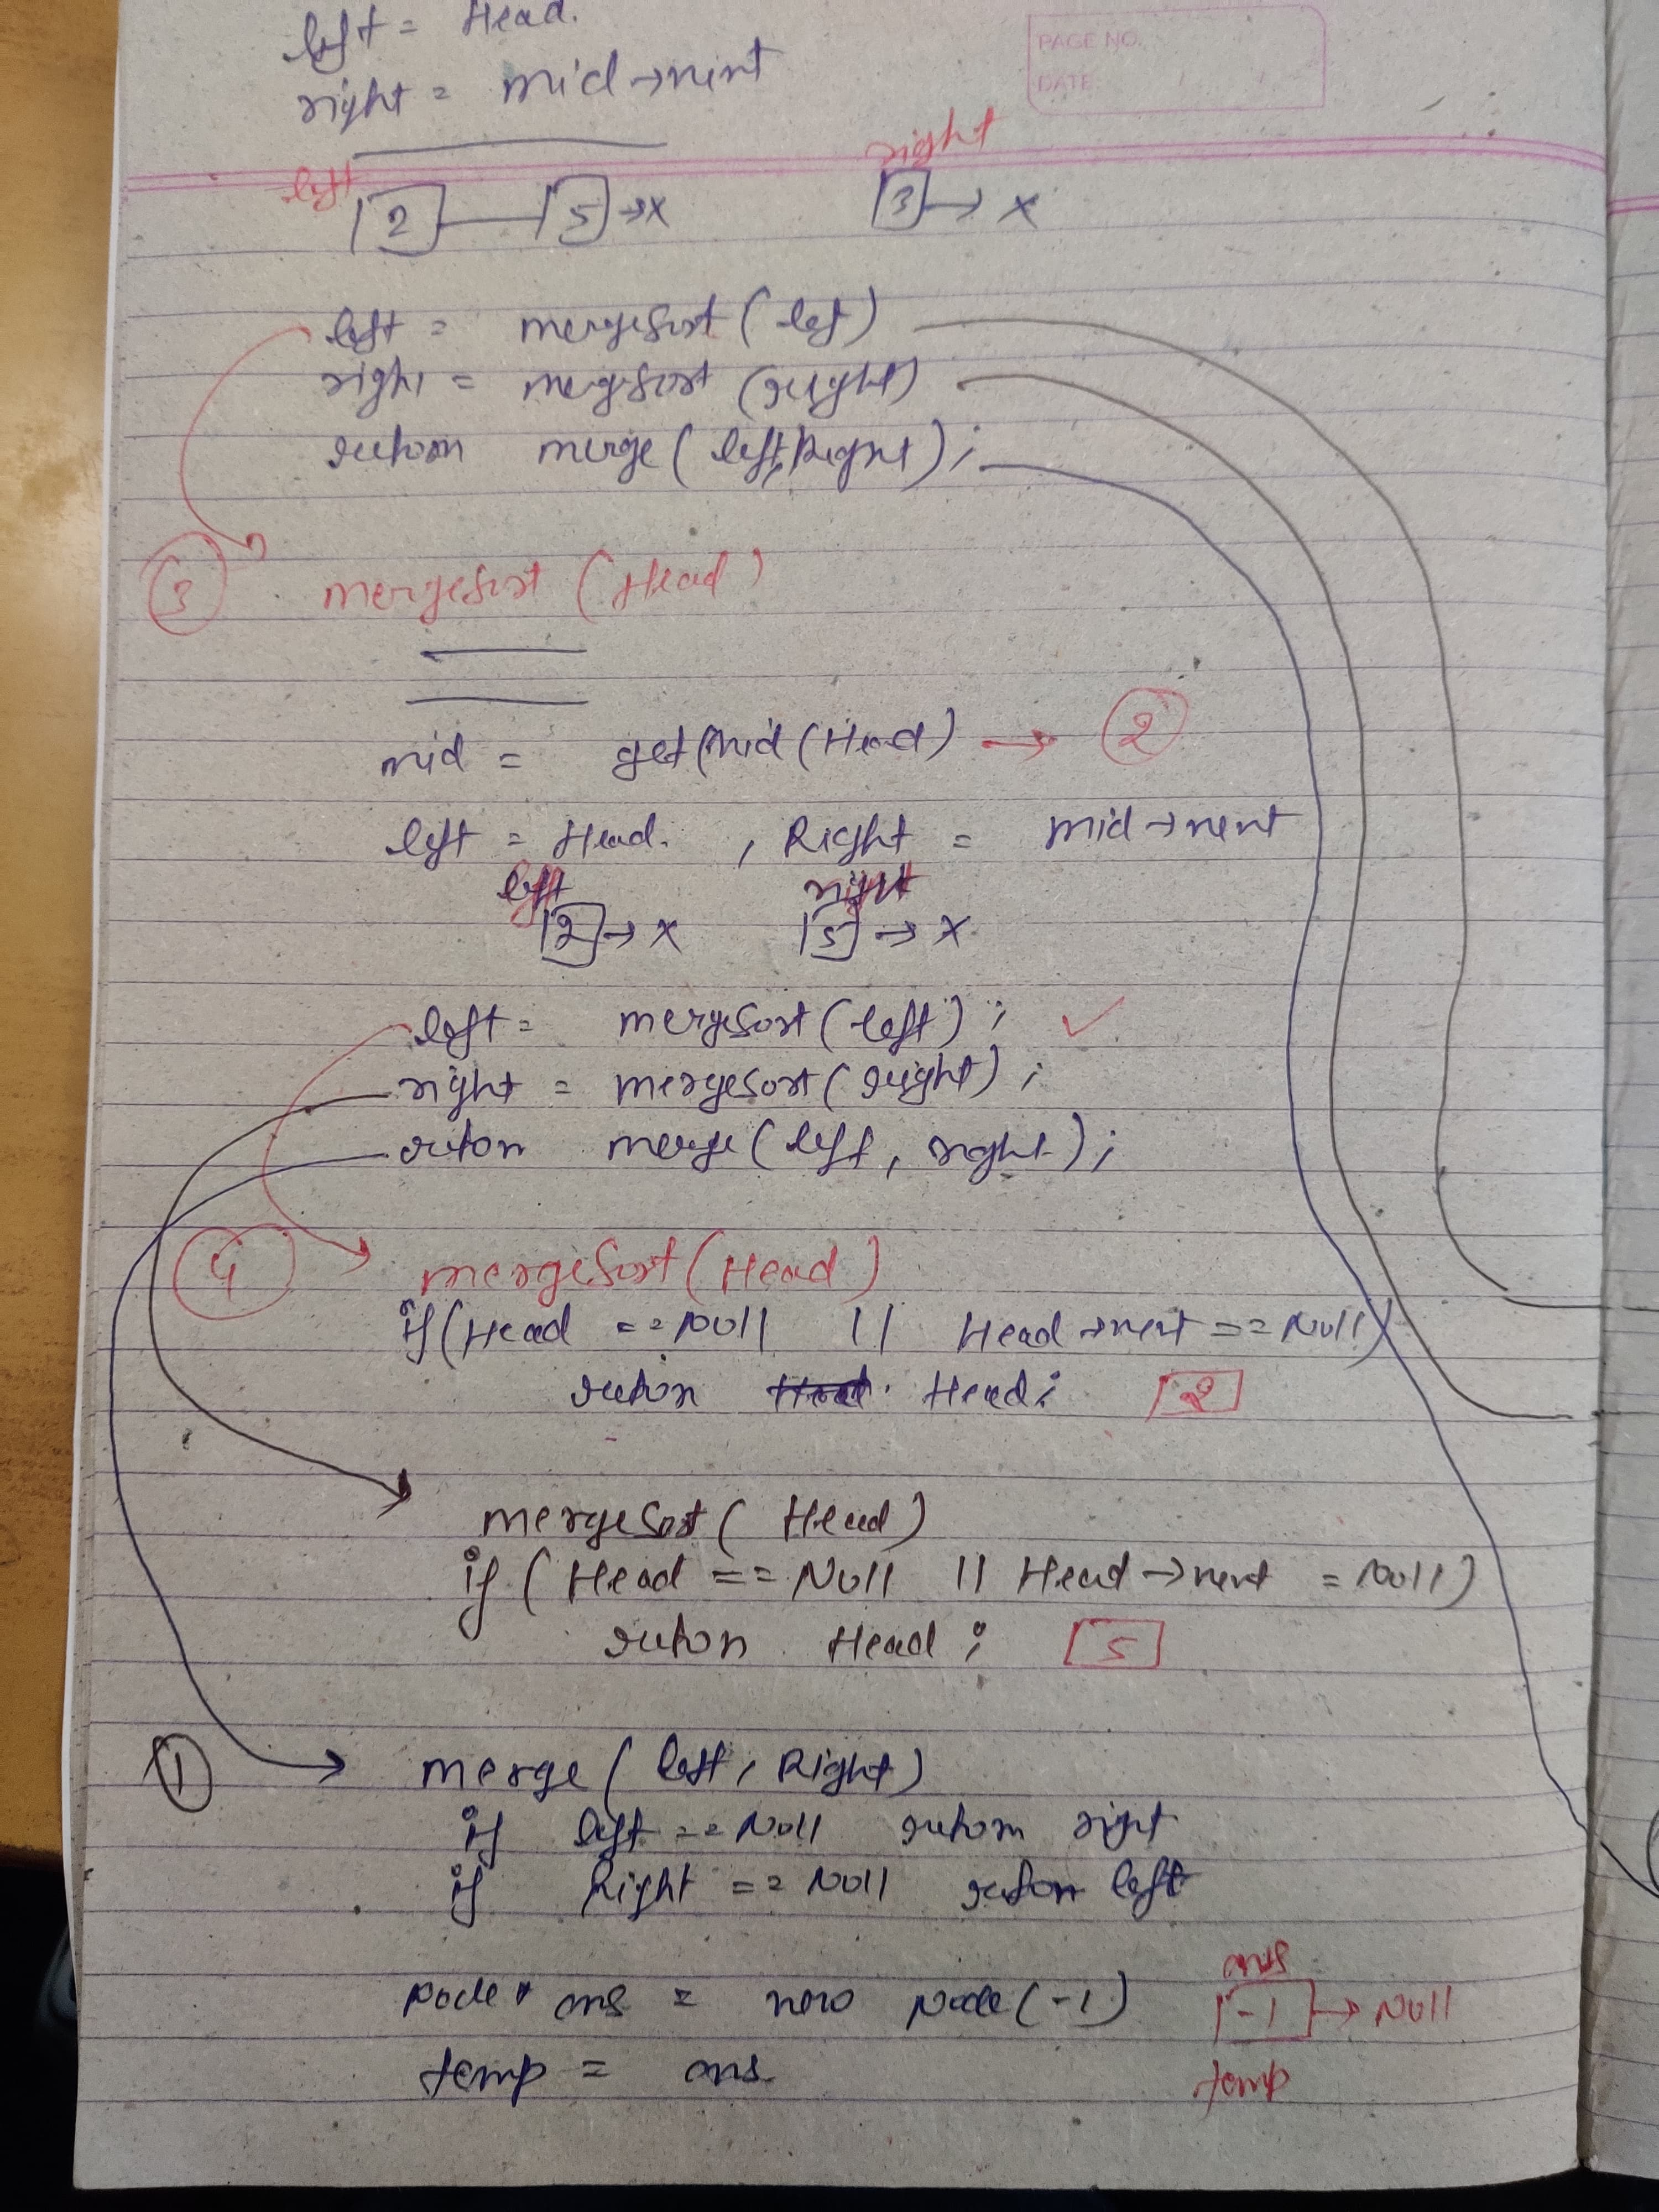 left = Head.
right = mid→next
PAGE NO.
DATE:
left
right
2 5 →x
3 → x
left = mergeSort (left)
right = mergeSort (right)
return merge (left, Right);
3 mergeSort (Head)
mid = getMid (Head) → 2
left = Head. , Right = mid→next
left right
2 → x 5 → x
left = mergeSort (left); ✓
right = mergeSort (right);
return merge (left, right);
4 mergeSort (Head)
if (Head == NUll || Head→next == NUll)
return Head; 2
mergeSort (Head)
if (Head == NUll || Head→next = NUll)
return Head; 5
1 merge (left, Right)
if left == NUll return right
if Right == NUll return left
ans
Node* ans = new Node (-1) -1 → NUll
temp = ans
temp